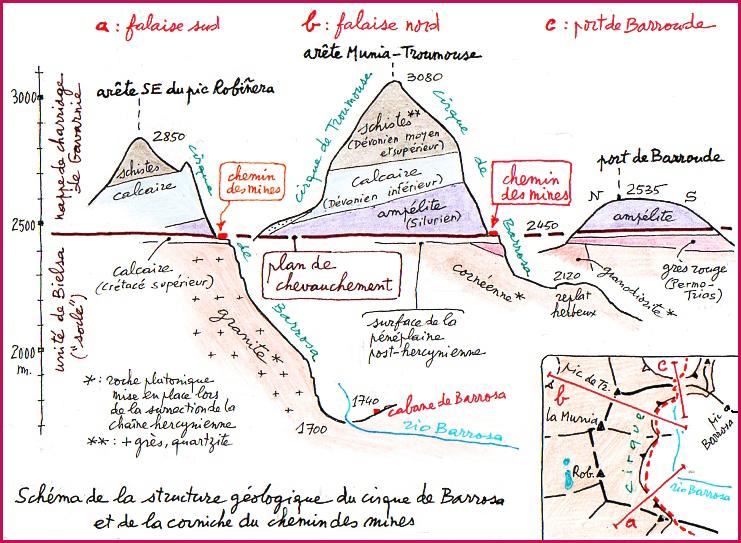 a : falaise sud
b : falaise nord
c : port de Barroude
arête Munia-Troumouse
3080
arête SE du pic Robiñera
2850
3000
2500
2000
m.
nappe de charriage
de Gavarnie
unité de Bielsa
("socle")
schistes
calcaire
cirque
de
Barrosa
chemin
des mines
cirque de Troumouse
schistes**
(Dévonien moyen
et supérieur)
calcaire
(Dévonien inférieur)
ampélite
(Silurien)
cirque
de
Barrosa
chemin
des mines
port de Barroude
N
2535
S
ampélite
2450
calcaire
(Crétacé supérieur)
plan de
chevauchement
cornéenne*
2120
replat
herbeux
granodiorite*
grès rouge
(Permo-
Trias)
surface de la
pénéplaine
post-hercynienne
granite*
* : roche plutonique
mise en place lors
de la surrection de la
chaîne hercynienne
** : + grès, quartzite
1740
cabane de Barrosa
1700
rio Barrosa
Pic de Tr.
c
b
la Munia
Pic
Barrosa
cirque
Rob.
rio Barrosa
a
Schéma de la structure géologique du cirque de Barrosa
et de la corniche du chemin des mines